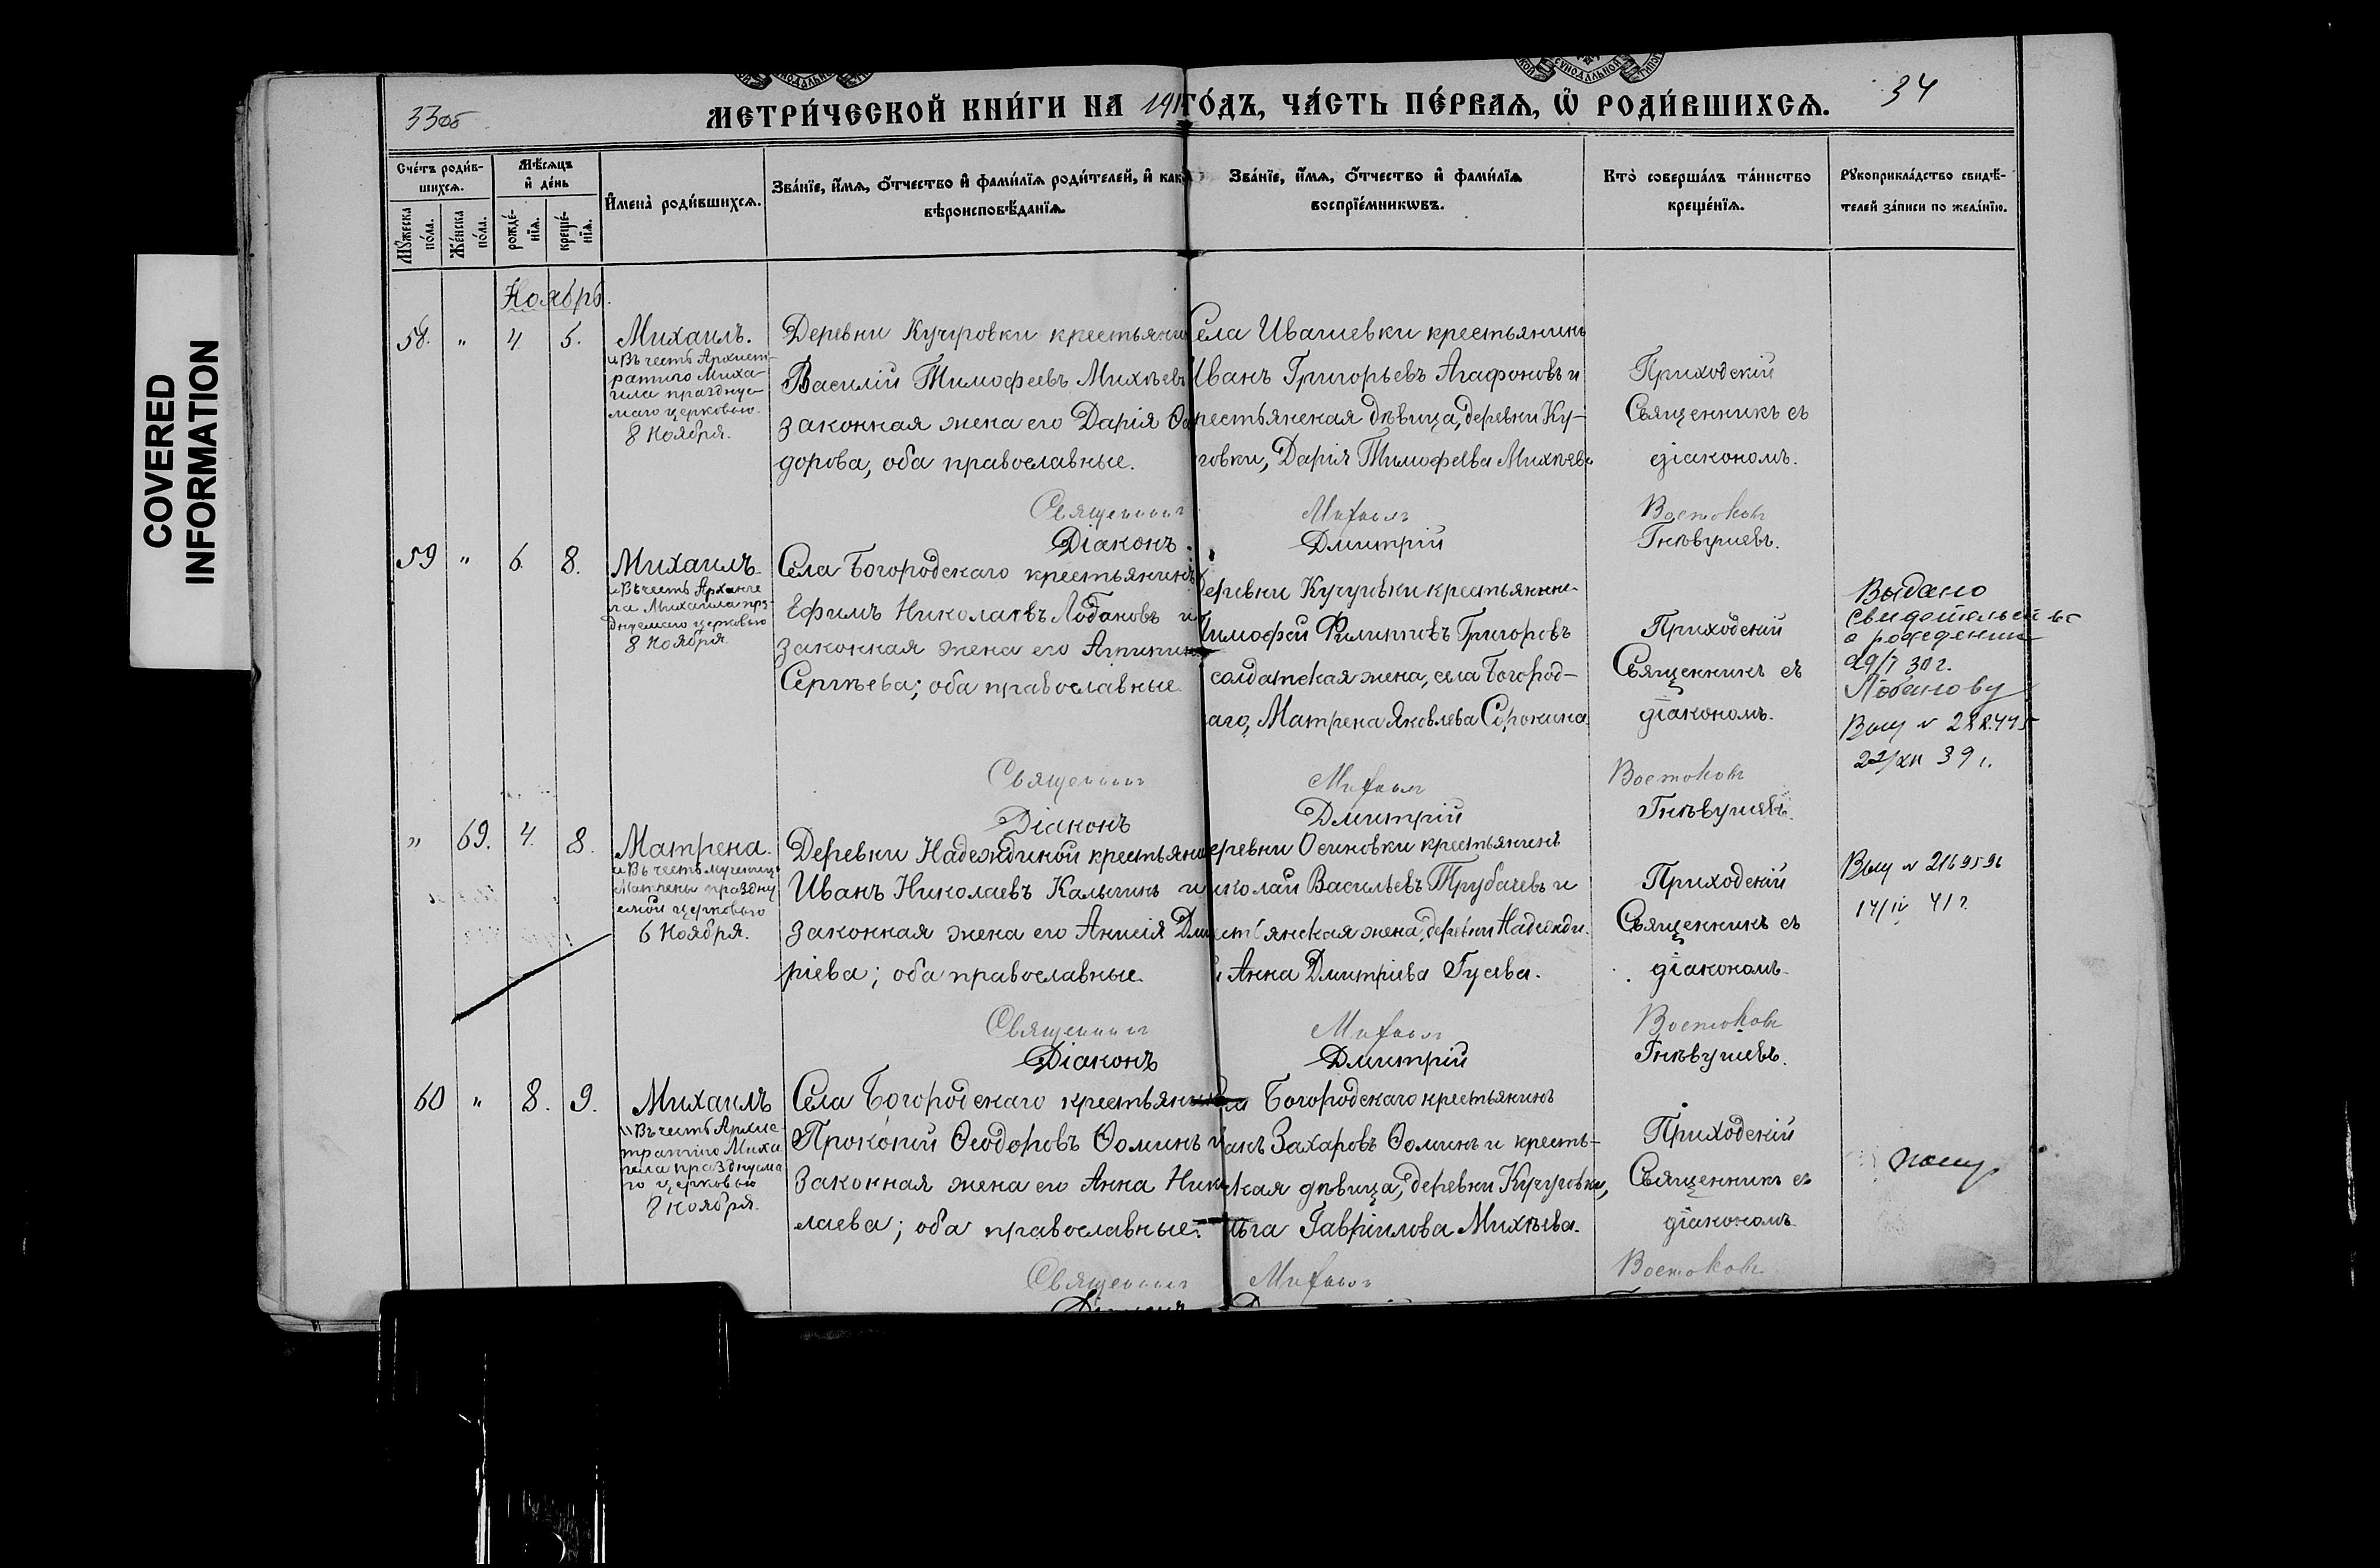 COVERED
INFORMATION
33об
МЕТРИ́ЧЕСКОЙ КНИ́ГИ НА 191 ГО́ДЪ, ЧА́СТЬ ПЕ́РВАѦ, Ѡ҆ РОДИ́ВШИХСѦ.
34
Сче́тъ роди́в-
шихсѧ.
Мꙋ́жеска
по́ла.
Же́нска
по́ла.
Мѣ́сѧцъ
и҆ де́нь
рожде́-
нїѧ.
креще́-
нїѧ.
И҆мена̀ роди́вшихсѧ.
Зва́нїе, и҆́мѧ, ѻ҆́тчество и҆ фами́лїѧ роди́телей, и҆ как
вѣроисповѣ́данїѧ.
Зва́нїе, и҆́мѧ, ѻ҆́тчество и҆ фами́лїѧ
воспрїе́мникѡвъ.
Кто̀ соверша́лъ та́инство
креще́нїѧ.
Рꙋкоприкла́дство свидѣ́-
телей за́писи по жела́нїю.
Ноябрь.
58. " 4. 5.
Михаилъ.
Въ честь Архист-
ратига Миха-
ила праздну-
маго церковью.
8 Ноября.
Деревни Кучуровки крестьянин
Василій Тимофеевъ Михѣевъ
законная жена его Дарія Ѳео
дорова, оба православные.
Села Ивашевки крестьянинъ
Иванъ Григорьевъ Агафоновъ и
рестьянская дѣвица, деревни Ку-
ровки, Дарія Тимофеева Михѣева
Приходскій
Священникъ съ
діакономъ.
Священникъ Михаилъ Востоковъ
Діаконъ Дмитрій Гнѣвушевъ.
59 " 6. 8.
Михаилъ
Въ честь Арханге
ла Михаила пра
зднуемаго церковью
8 Ноября.
Села Богородскаго крестьянинъ
Ефимъ Николаевъ Лобановъ и
законная жена его
Сергѣева; оба православные.
деревни Кучуровки крестьянин-
Тимофей Филипповъ Григоровъ
солдатская жена, села Богород-
аго, Матрена Яковлева Сорокина
Приходскій
Священникъ съ
діакономъ.
Выдано
свидетельство
о рождении
29/7 30 г.
Лобанову
Выд N 282445
22/XII 39 г.
Священникъ Михаилъ Востоковъ
Діаконъ Дмитрій Гнѣвушевъ.
" 69. 4. 8.
Матрена.
Въ честь мученицы
Матрены праздну
емой церковью
6 Ноября.
Деревни Надеждиной крестьянин
Иванъ Николаевъ Калыгинъ и
законная жена его Анисія Дми
ріева; оба православные.
еревни Осиновки крестьянинъ
иколай Васильевъ Трубачевъ и
естьянская жена, деревни Надежди.
Анна Дмитріева Гусева.
Приходскій
Священникъ съ
діакономъ.
Выд N 2169596
14/IV 41 г.
Священникъ Михаилъ Востоковъ
Діаконъ Дмитрій Гнѣвушевъ.
60 " 8. 9.
Михаилъ
Въ честь Архис-
тратига Миха
ила празднуема
го церковью
8 Ноября.
Села Богородскаго крестьянин
Прокопій Ѳеодоровъ Ѳоминъ и
законная жена его Анна Нико
лаева; оба православные.
ла Богородскаго крестьянинъ
анъ Захаровъ Ѳоминъ и кресть-
ская дѣвица, деревни Кучуровки,
льга Гавріилова Михѣева.
Приходскій
Священникъ съ
діакономъ.
Священникъ Михаилъ Востоковъ